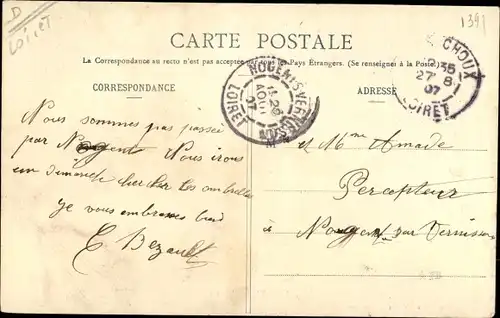 D
Loiret
1391
CARTE POSTALE
La Correspondance au recto n'est pas acceptée par tous les Pays Étrangers. (Se renseigner à la Poste.)
CORRESPONDANCE
ADRESSE
NOGENT-S-VERNISSON
26
AOUT
07
LOIRET
CHOUX
27-8
07
LOIRET
Nous sommes pas passés
par Nogent Nous irons
un dimanche chercher les ombrelles
Je vous embrasse
E. Bezault
et Mme Amade
Percepteur
à Nogent sur Vernisson